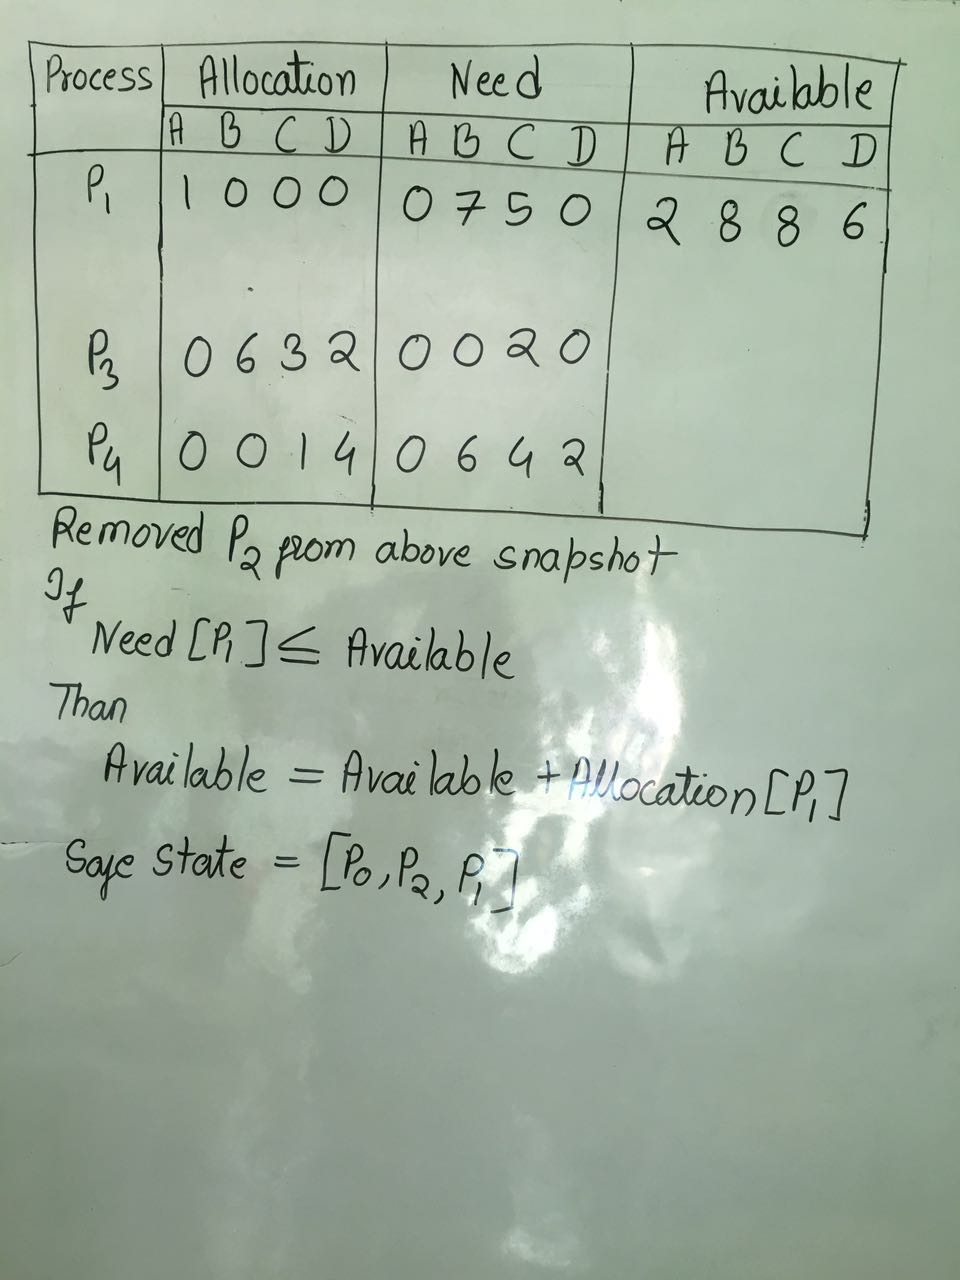 Process Allocation Need Available
A B C D A B C D A B C D
P1 1 0 0 0 0 7 5 0 2 8 8 6
P3 0 6 3 2 0 0 2 0
P4 0 0 1 4 0 6 4 2
Removed P2 from above snapshot
If
Need [P1] ≤ Available
Than
Available = Available + Allocation [P1]
Safe State = [P0, P2, P1]